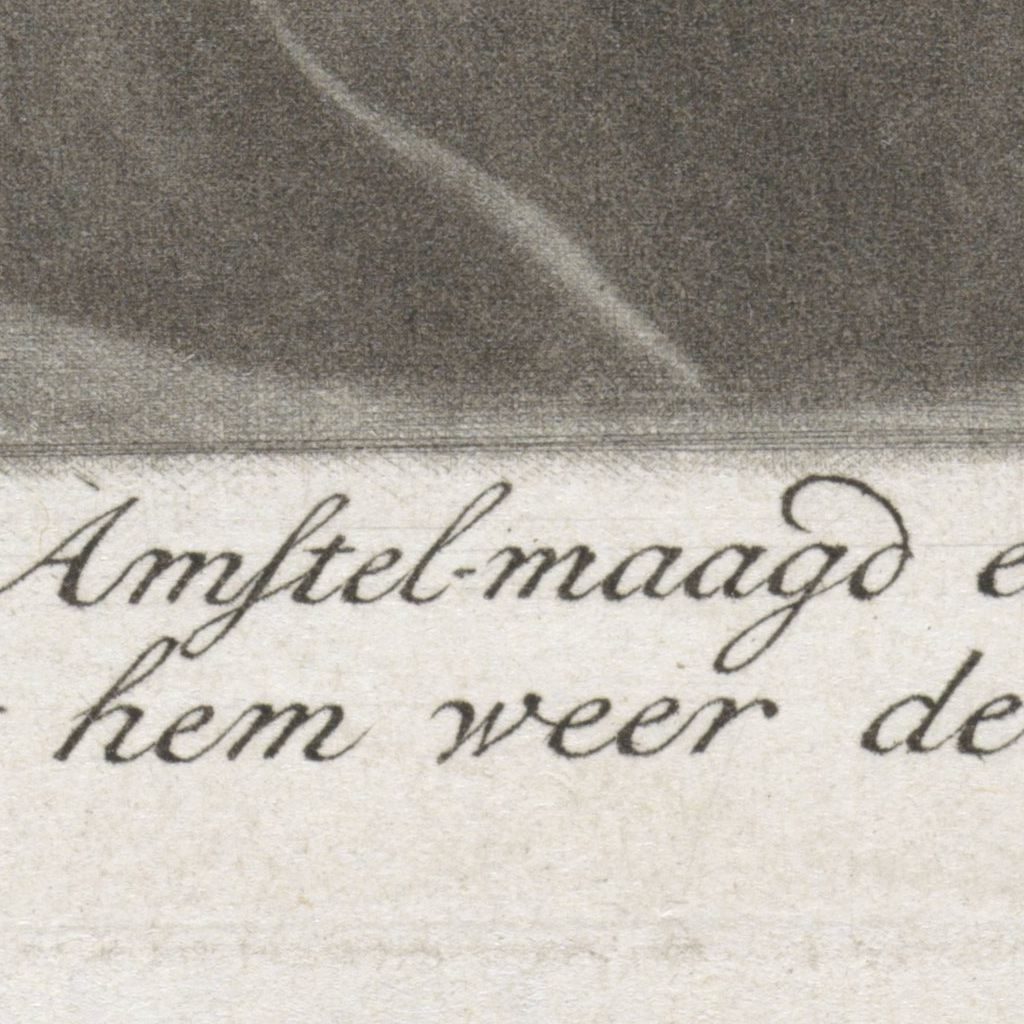 Amſtel-maagd e
hem weer de